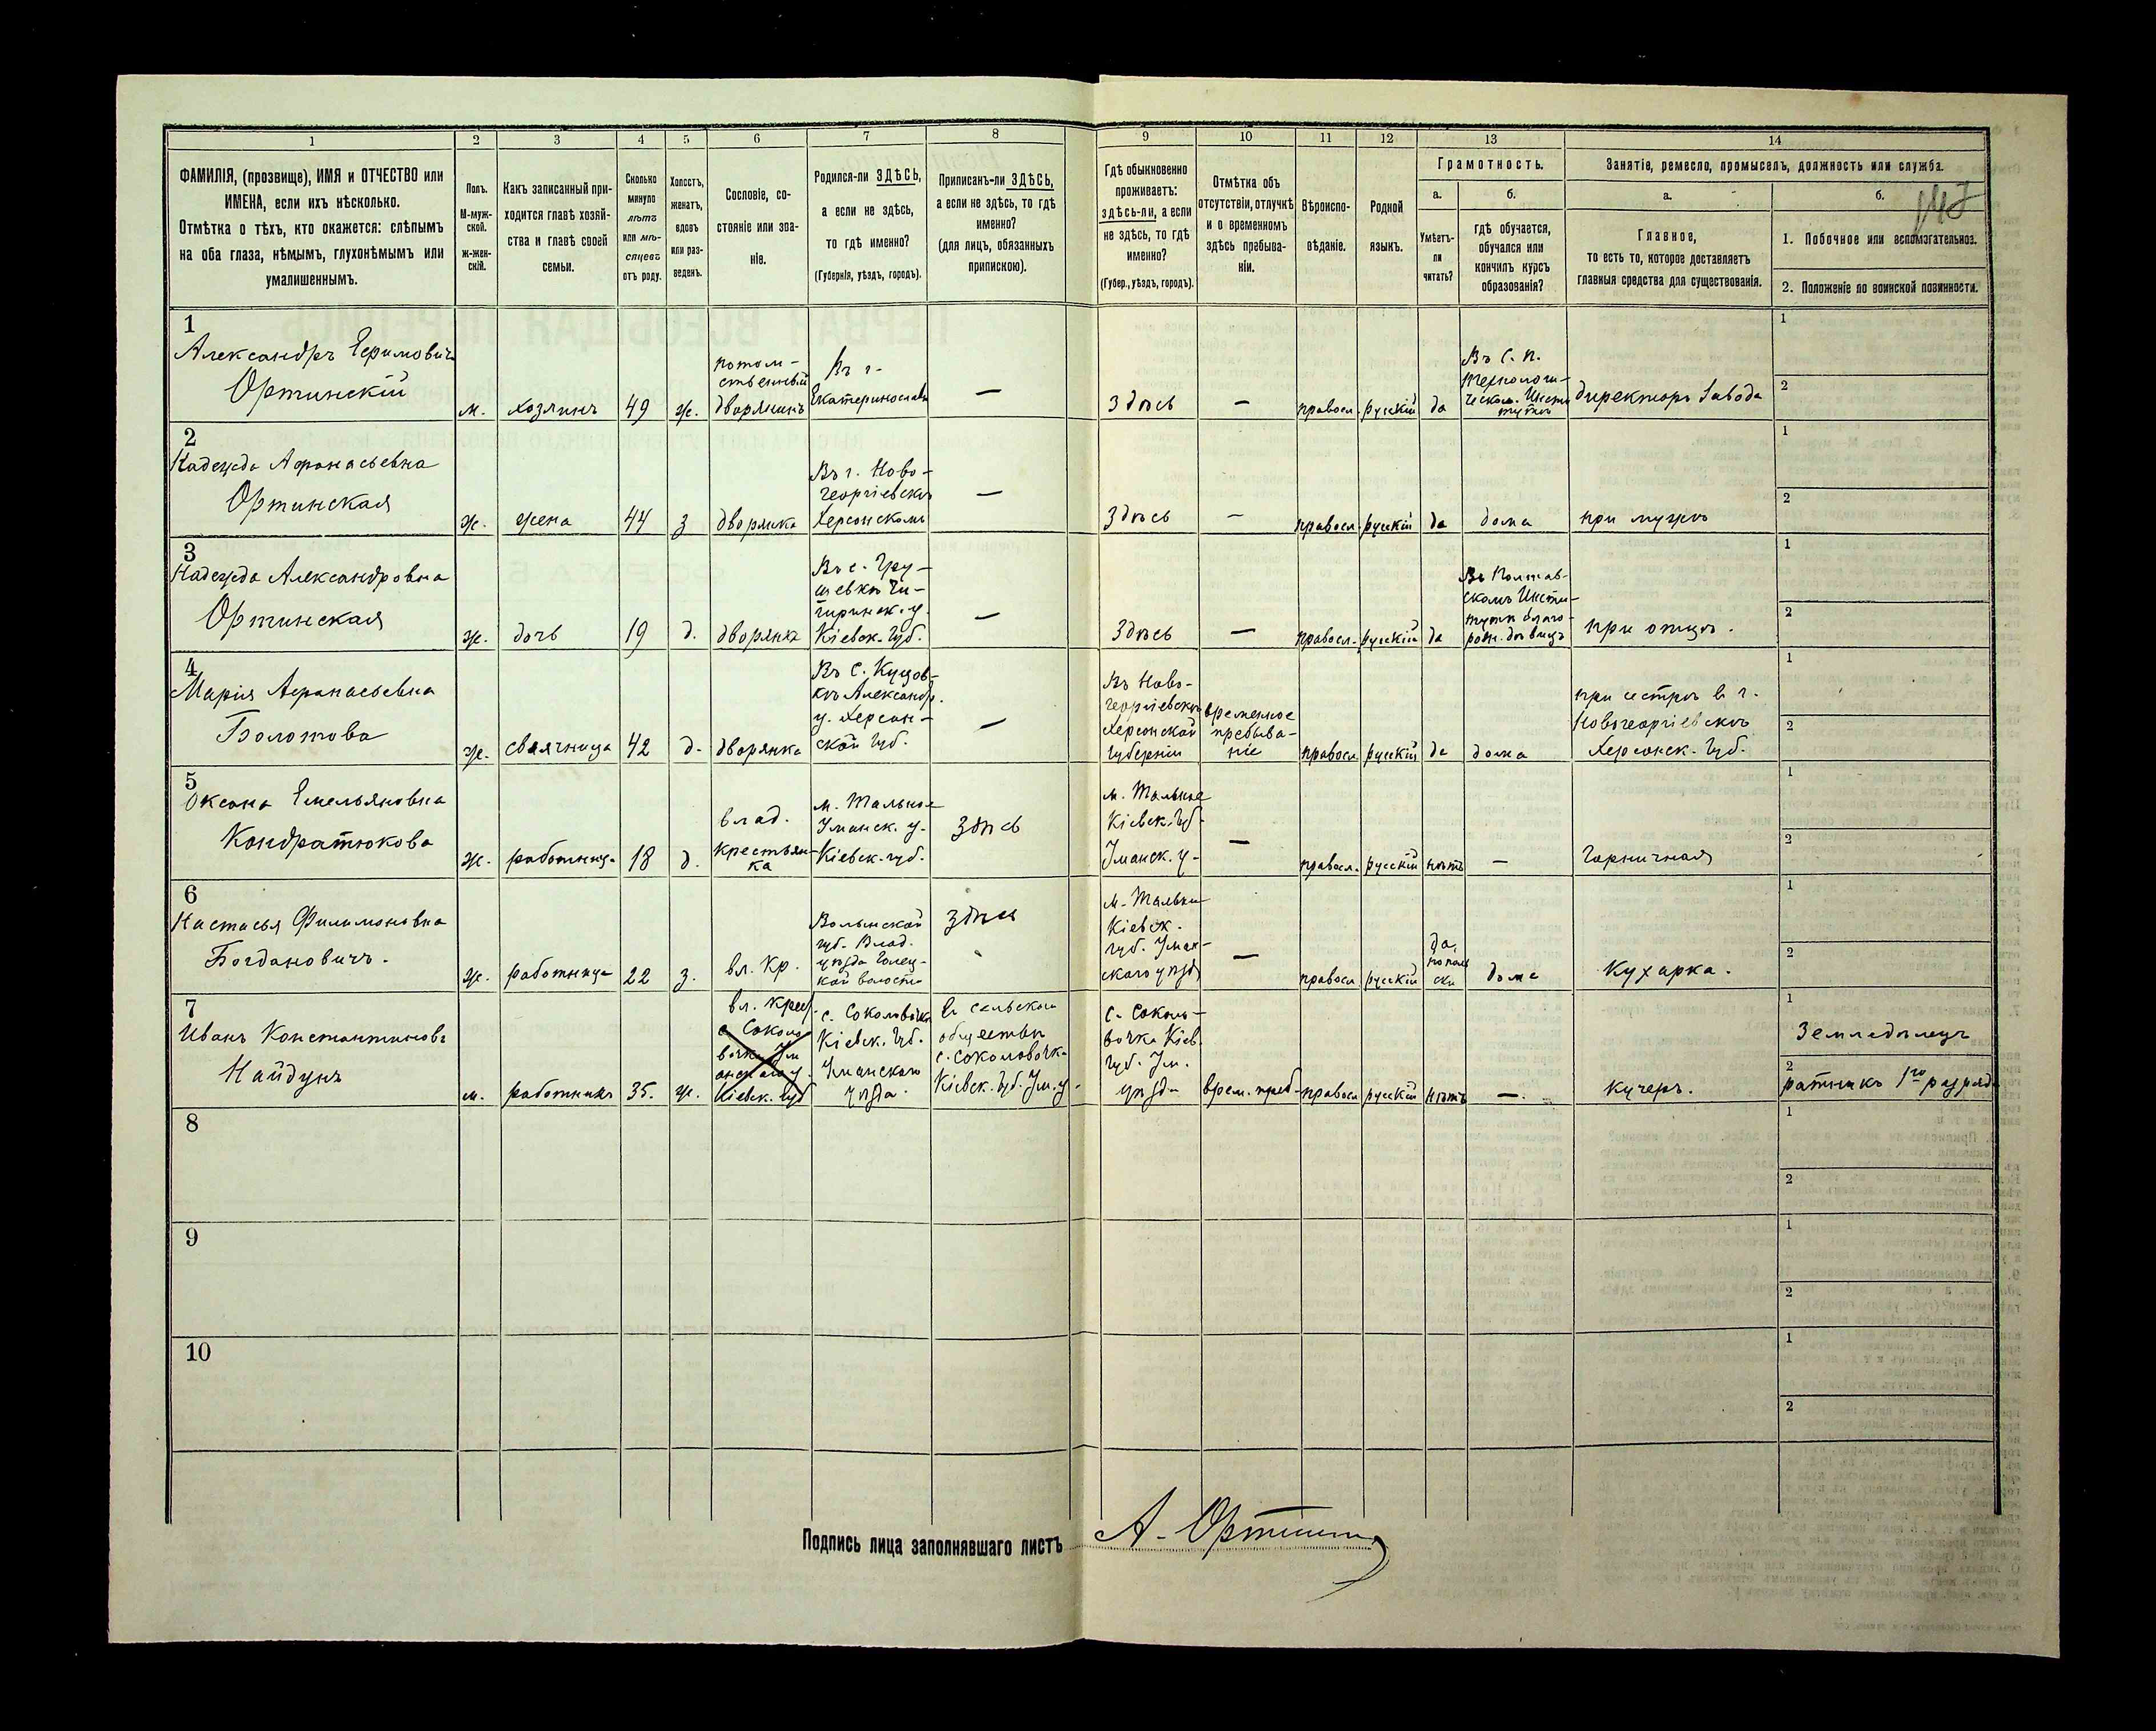 1 2 3 4 5 6 7 8 9 10 11 12 13 14
ФАМИЛІЯ, (прозвище), ИМЯ и ОТЧЕСТВО или
ИМЕНА, если ихъ нѣсколько.
Отмѣтка о тѣхъ, кто окажется: слѣпымъ
на оба глаза, нѣмымъ, глухонѣмымъ или
умалишеннымъ.
Полъ.
М-муж-
ской.
Ж-жен-
скій.
Какъ записанный при-
ходится главѣ хозяй-
ства и главѣ своей
семьи.
Сколько
минуло
лѣтъ
или мѣ-
сяцевъ
отъ роду.
Холостъ,
женатъ,
вдовъ
или раз-
веденъ.
Сословіе, со-
стояніе или зва-
ніе.
Родился-ли ЗДѢСЬ,
а если не здѣсь,
то гдѣ именно?
(Губернія, уѣздъ, городъ).
Приписанъ-ли ЗДѢСЬ,
а если не здѣсь, то гдѣ
именно?
(для лицъ, обязанныхъ
припискою).
Гдѣ обыкновенно
проживаетъ:
здѣсь-ли, а если
не здѣсь, то гдѣ
именно?
(Губер., уѣздъ, городъ).
Отмѣтка объ
отсутствіи, отлучкѣ
и о временномъ
здѣсь пребыва-
ніи.
Вѣроиспо-
вѣданіе.
Родной
языкъ.
Грамотность.
а.
Умѣетъ-
ли
читать?
б.
гдѣ обучается,
обучался или
кончилъ курсъ
образованія?
Занятіе, ремесло, промыселъ, должность или служба.
а.
Главное,
то есть то, которое доставляетъ
главныя средства для существованія.
б.
1. Побочное или вспомогательное.
2. Положеніе по воинской повинности.
1
Александръ Ефимовичъ
Ортинскій
м.
хозяинъ
49
ж.
потом-
ственный
дворянинъ
Въ г.
Екатеринославѣ
—
Здѣсь
—
правосл.
русскій
да
Въ С. П.
Технологи-
ческом. Инсти
тутѣ
директоръ завода
1
2
2
Надежда Афанасьевна
Ортинская
ж.
жена
44
з
дворянка
Въ г. Ново-
георгіевскѣ
Херсонскомъ
—
Здѣсь
—
правосл.
русскій
да
дома
при мужѣ
1
2
3
Надежда Александровна
Ортинская
ж.
дочь
19
д.
дворянка
Въ с. Гру-
шевкѣ Чи-
гиринск. у.
Кіевск. Губ.
—
Здѣсь
—
правосл.
русскій
да
Въ Полтав-
скомъ Инсти-
тутѣ благо-
род. дѣвицъ
при отцѣ.
1
2
4
Марія Афанасьевна
Болотова
ж.
своячница
42
д.
дворянка
Въ С. Куцов-
кѣ Александр.
у. Херсон-
ской Губ.
—
Въ Ново-
георгіевскѣ
Херсонской
Губерніи
временное
пребыва-
ніе
правосл.
русскій
да
дома
при сестрѣ в г.
Новогеоргіевскѣ
Херсонск. Губ.
1
2
5
Оксана Емельяновна
Кондратюкова
ж.
работница
18
д.
влад.
крестьян-
ка
м. Тальное
Уманск. у.
Кіевск. губ.
Здѣсь
м. Тальное
Кіевск. Губ.
Уманск. у.
—
правосл.
русскій
нѣтъ
—
Горничная
1
2
6
Настасья Филимоновна
Богдановичъ.
ж.
работница
22
з.
вл. Кр.
Волынской
губ. Влад.
уѣзда
кой волости
Здѣсь
м. Тальное
Кіевск.
губ. Уман-
скаго уѣзда
—
правосл.
русскій
да,
по поль
ски
дома
Кухарка.
1
2
7
Иванъ Константиновъ
Найдунъ
м.
работникъ
35.
ж.
вл. крест.
с. Соколо
вочка Ум
анскаго у.
Кіевск. губ
с. Соколовочка
Кіевск. Губ.
Уманскаго
уѣзда.
въ сельском
обществѣ
с. Соколовочка
Кіевск. Губ. Ум. у.
с. Соколо-
вочка Кіев.
Губ. Ум.
уѣзда
врем. преб.
правосл
русскій
нѣтъ
—.
кучеръ.
1
Земледѣлецъ
2
ратникъ 1го разряда
8
1
2
9
1
2
10
1
2
Подпись лица заполнявшаго листъ